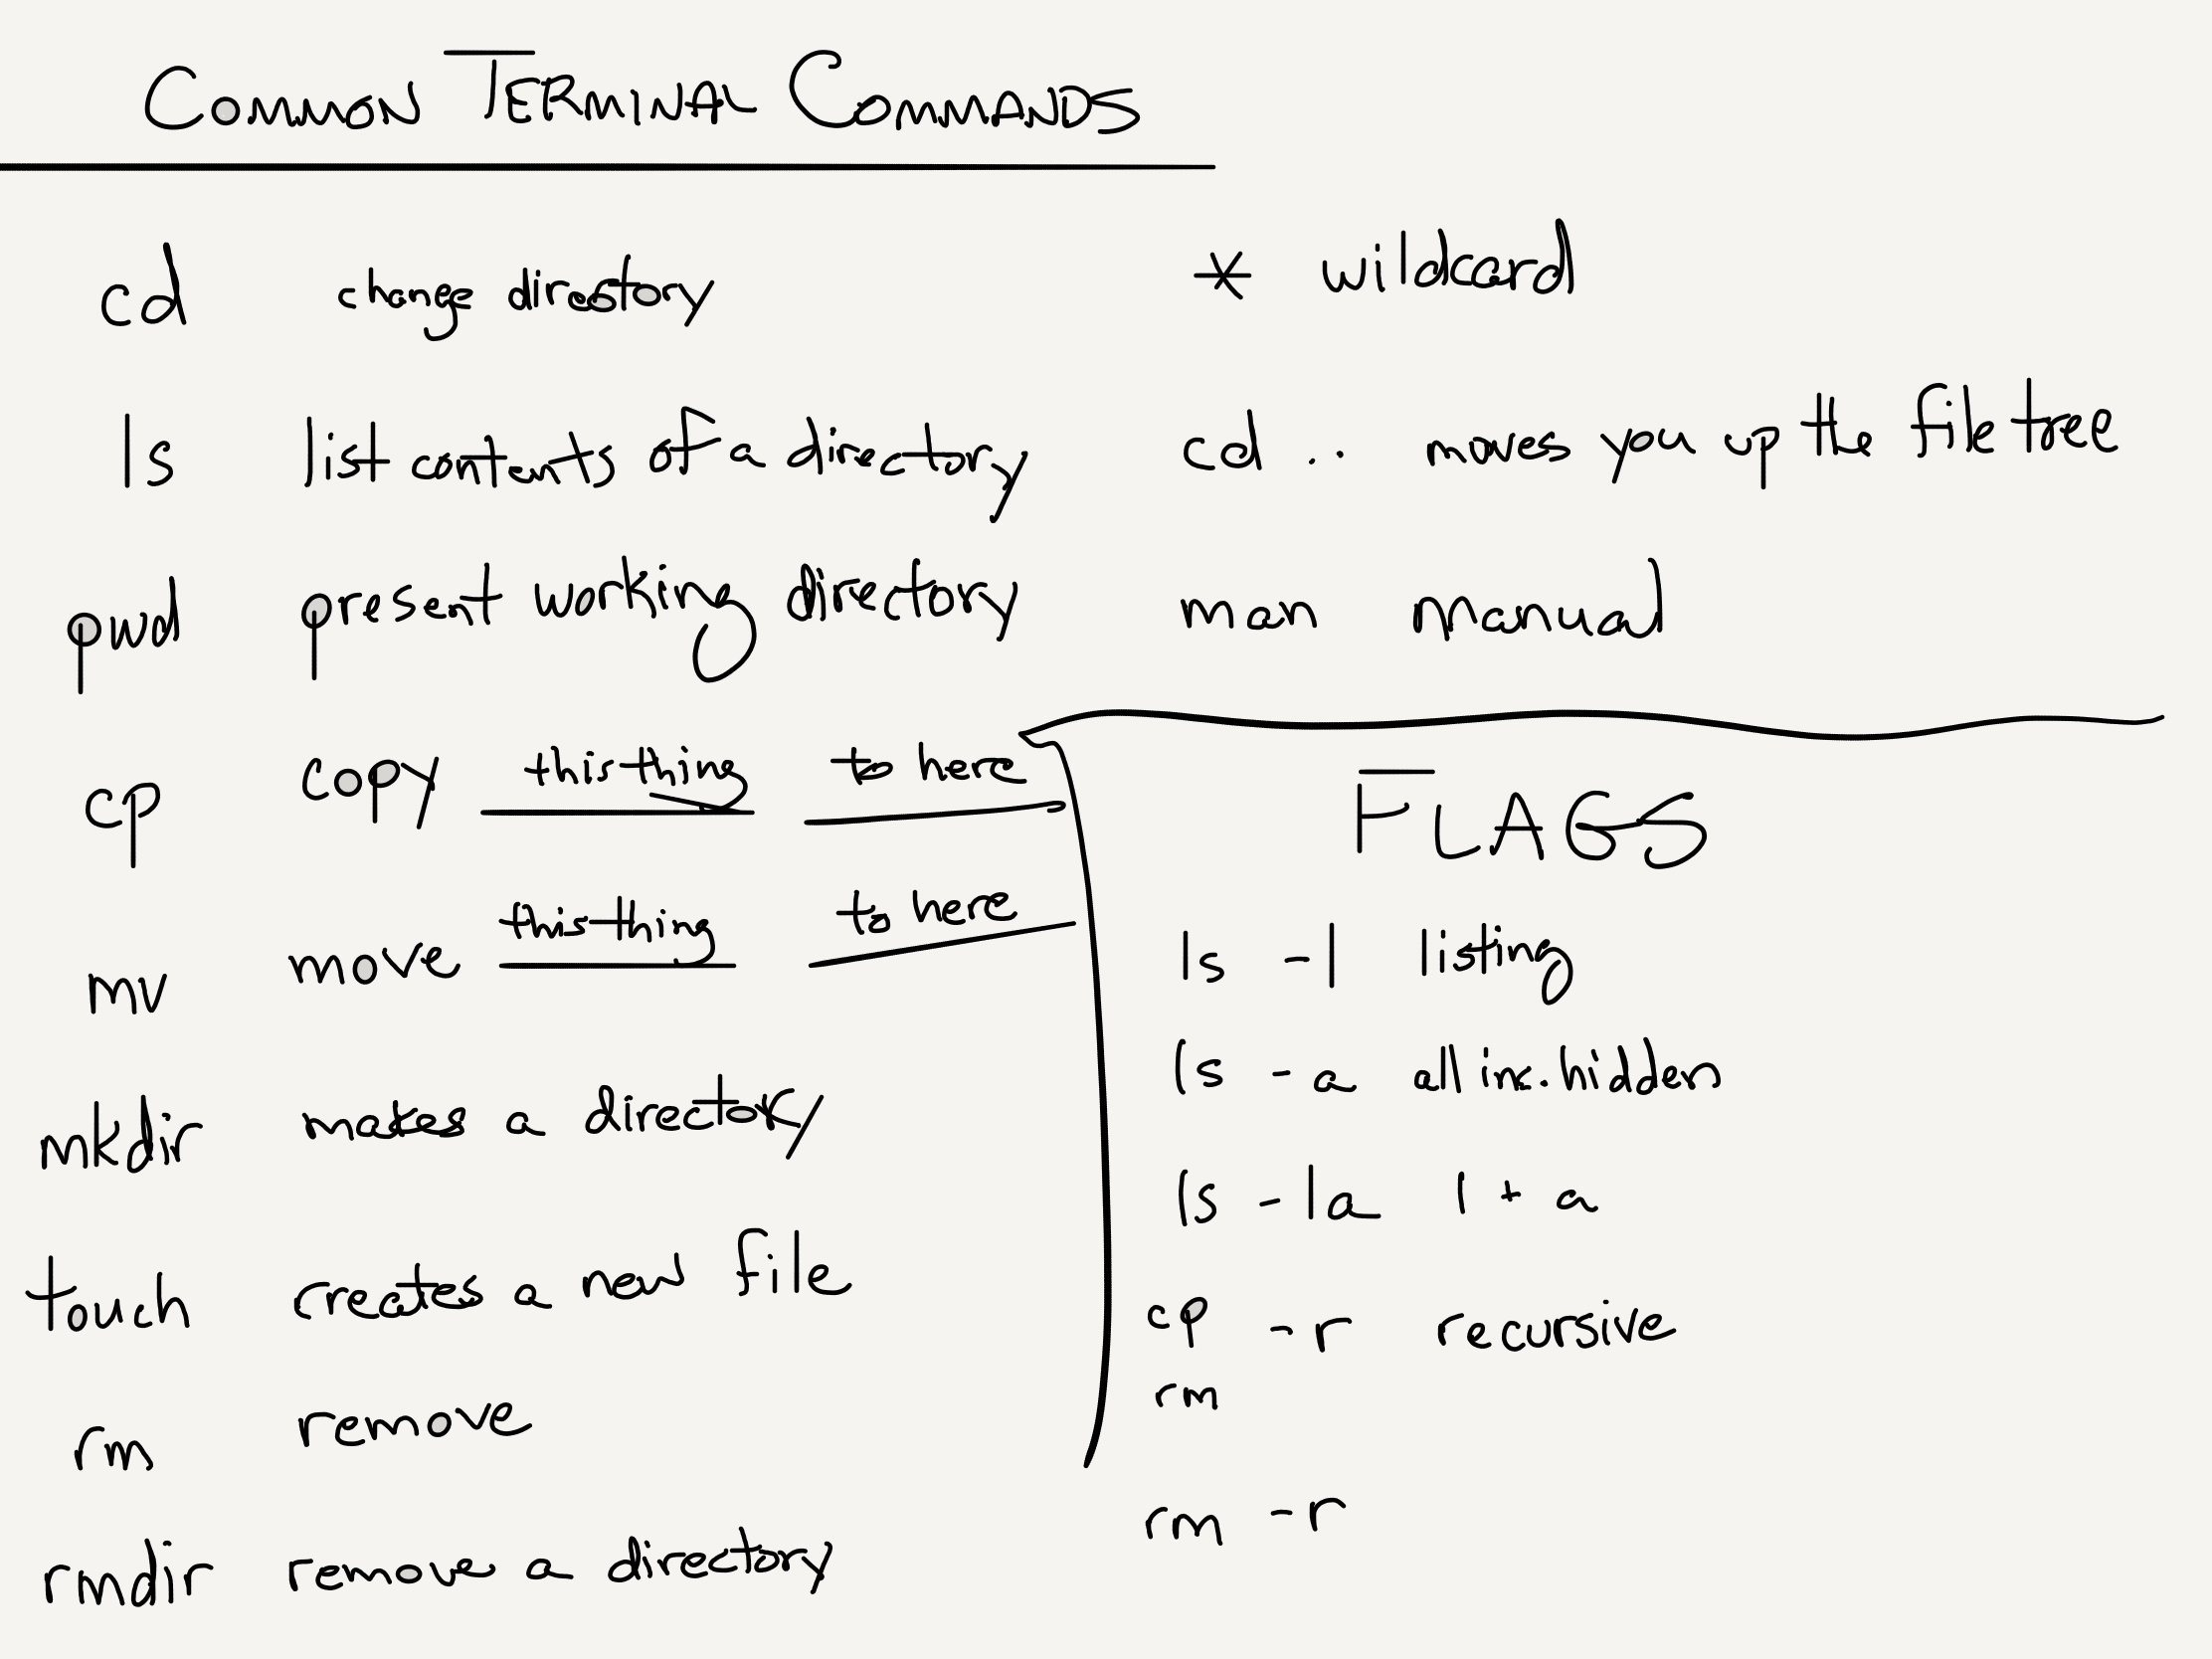 COMMON TERMINAL COMMANDS
cd change directory
ls list contents of a directory
pwd present working directory
cp copy this thing to here
mv move this thing to here
mkdir makes a directory
touch creates a new file
rm remove
rmdir remove a directory
* wildcard
cd .. moves you up the file tree
man manual
FLAGS
ls -l listing
ls -a all inc. hidden
ls -la l + a
cp -r recursive
rm
rm -r